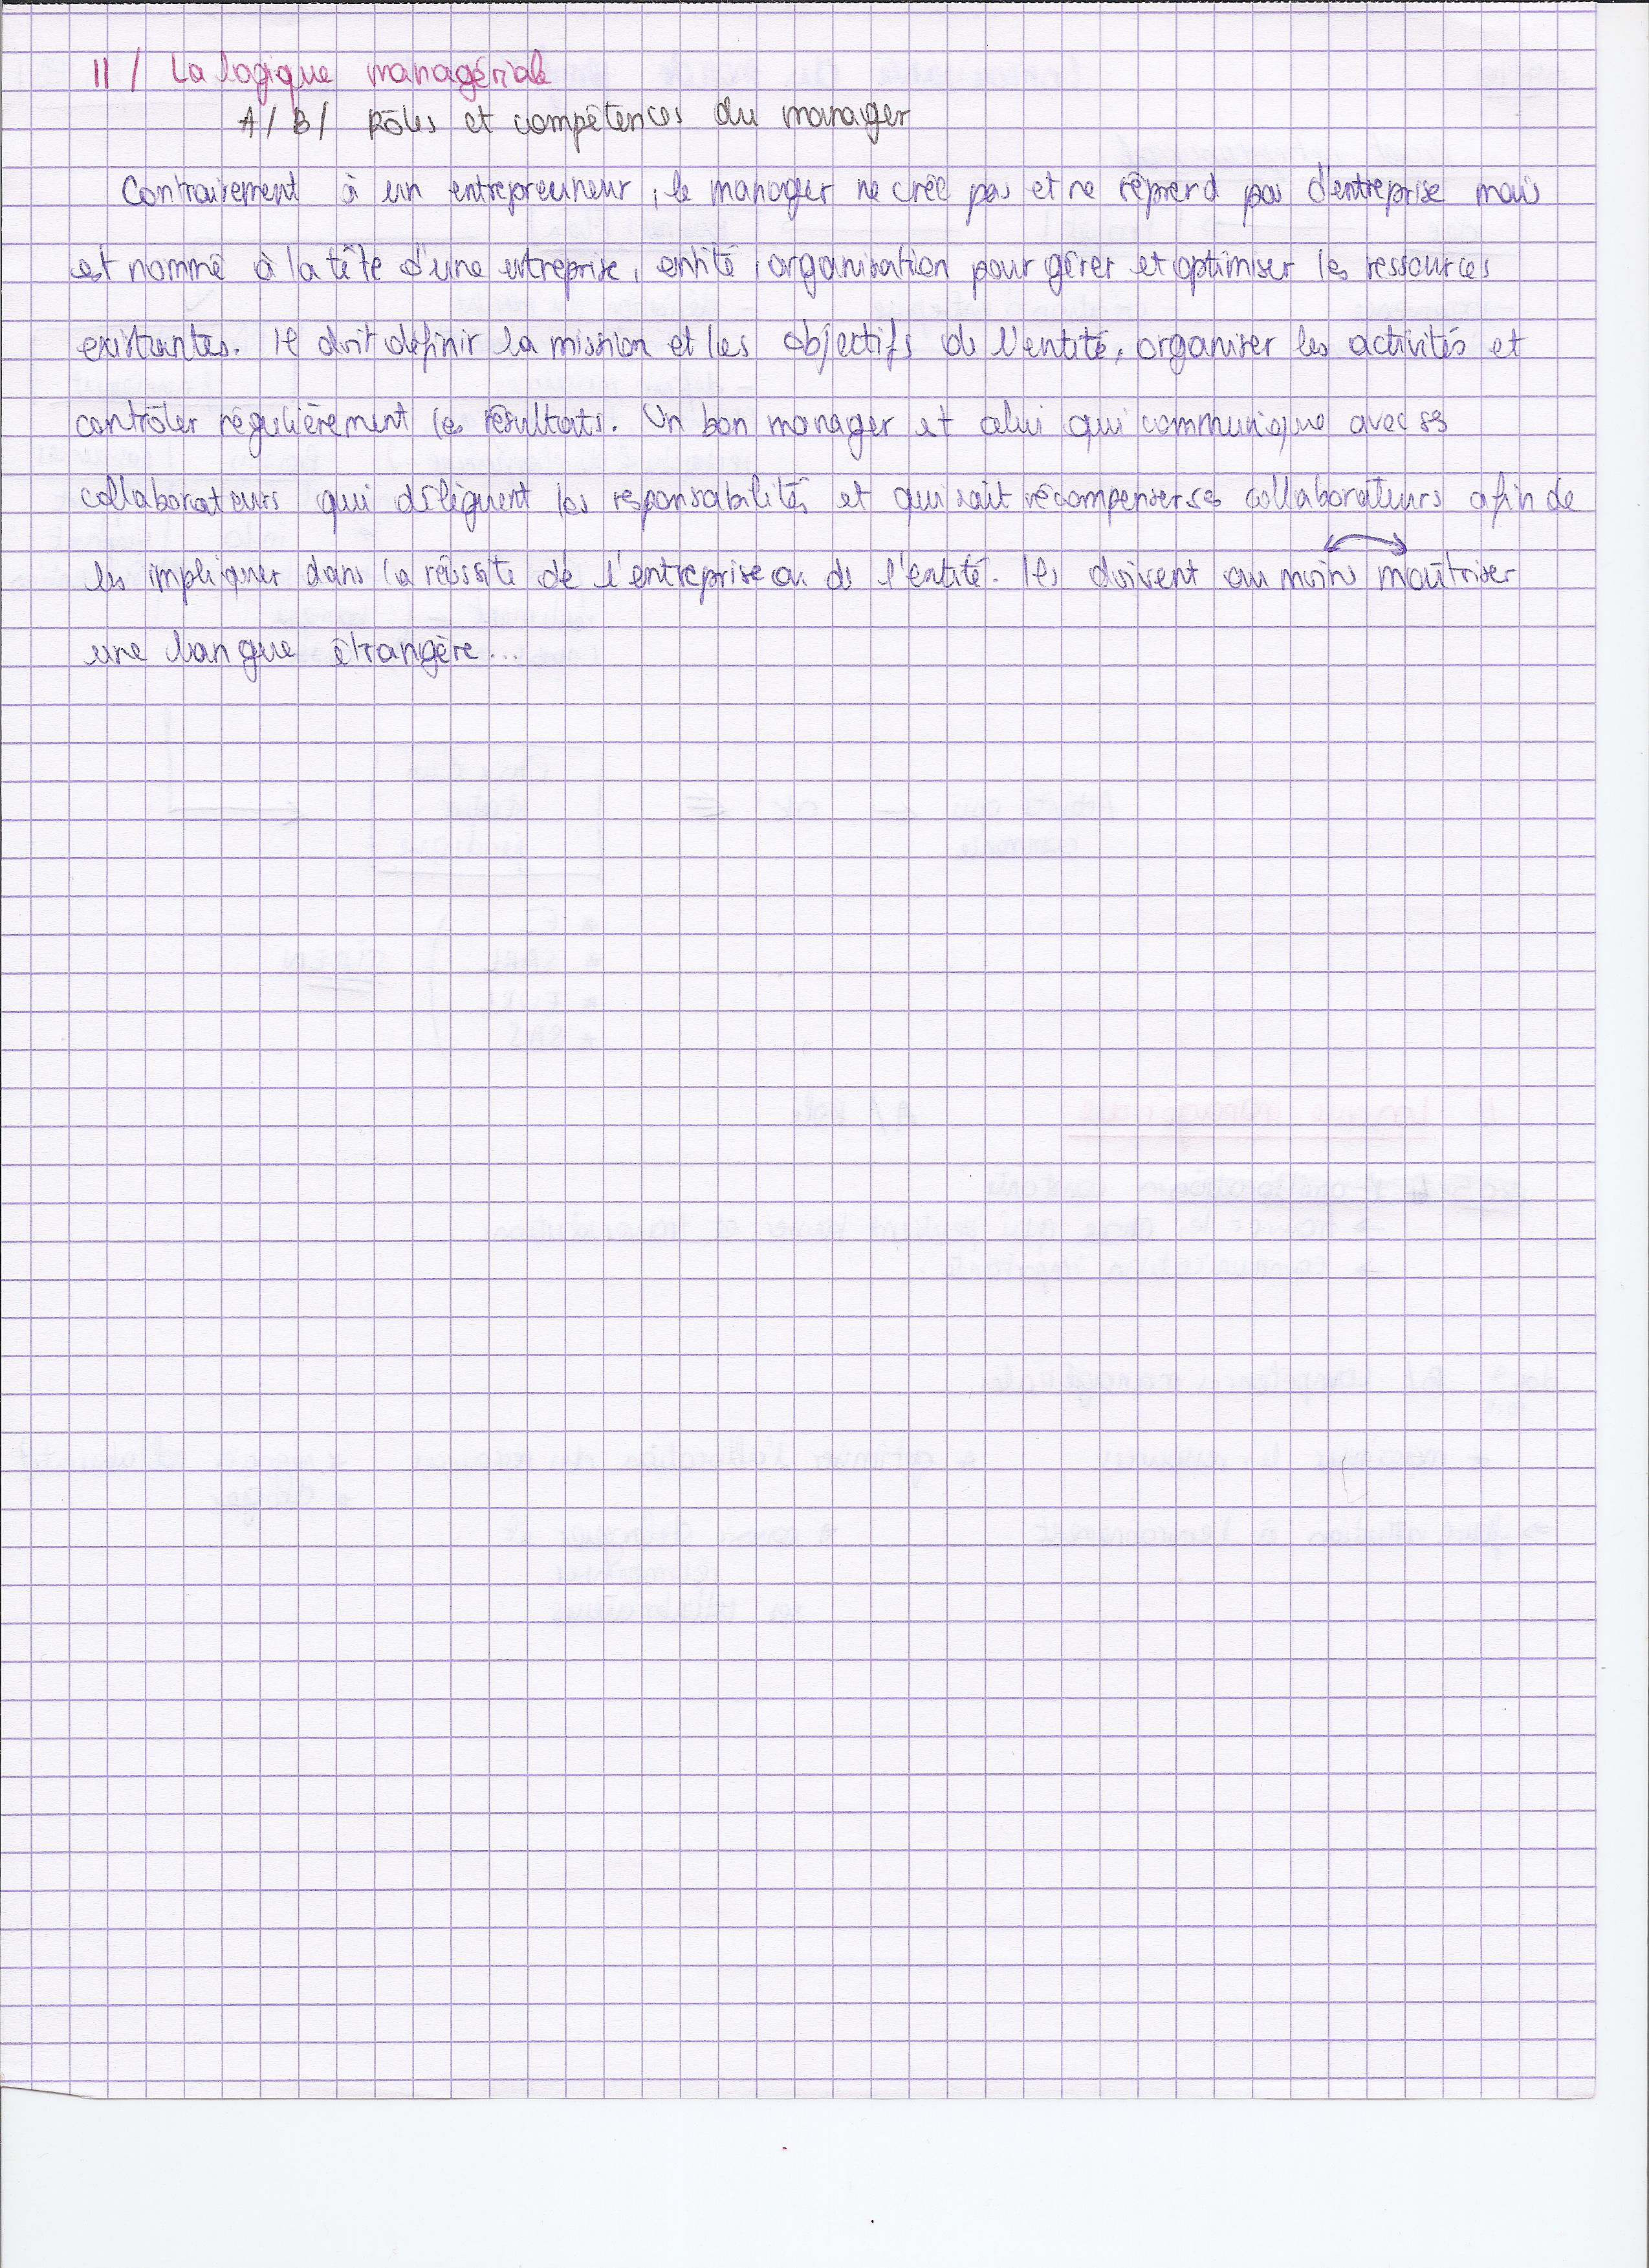 II / La logique managériale
A/ B/ Rôles et compétences du manager
Contrairement à un entrepreuneur, le manager ne crée pas et ne réprerd pas d'entreprise mais
est nommé à la tête d'une entreprise, entité, organisation pour gérer et optimiser les ressources
existantes. Il doit définir la mission et les objectifs de l'entité, organiser les activités et
contrôler régulièrement les résultats. Un bon manager et celui qui communique avec ses
collaborateurs qui délèguent les responsabilités et qui sait récompenser ses collaborateurs afin de
les impliquer dans la réussite de l'entreprise ou de l'entité. Ils doivent au moins maîtriser
une langue étrangère...